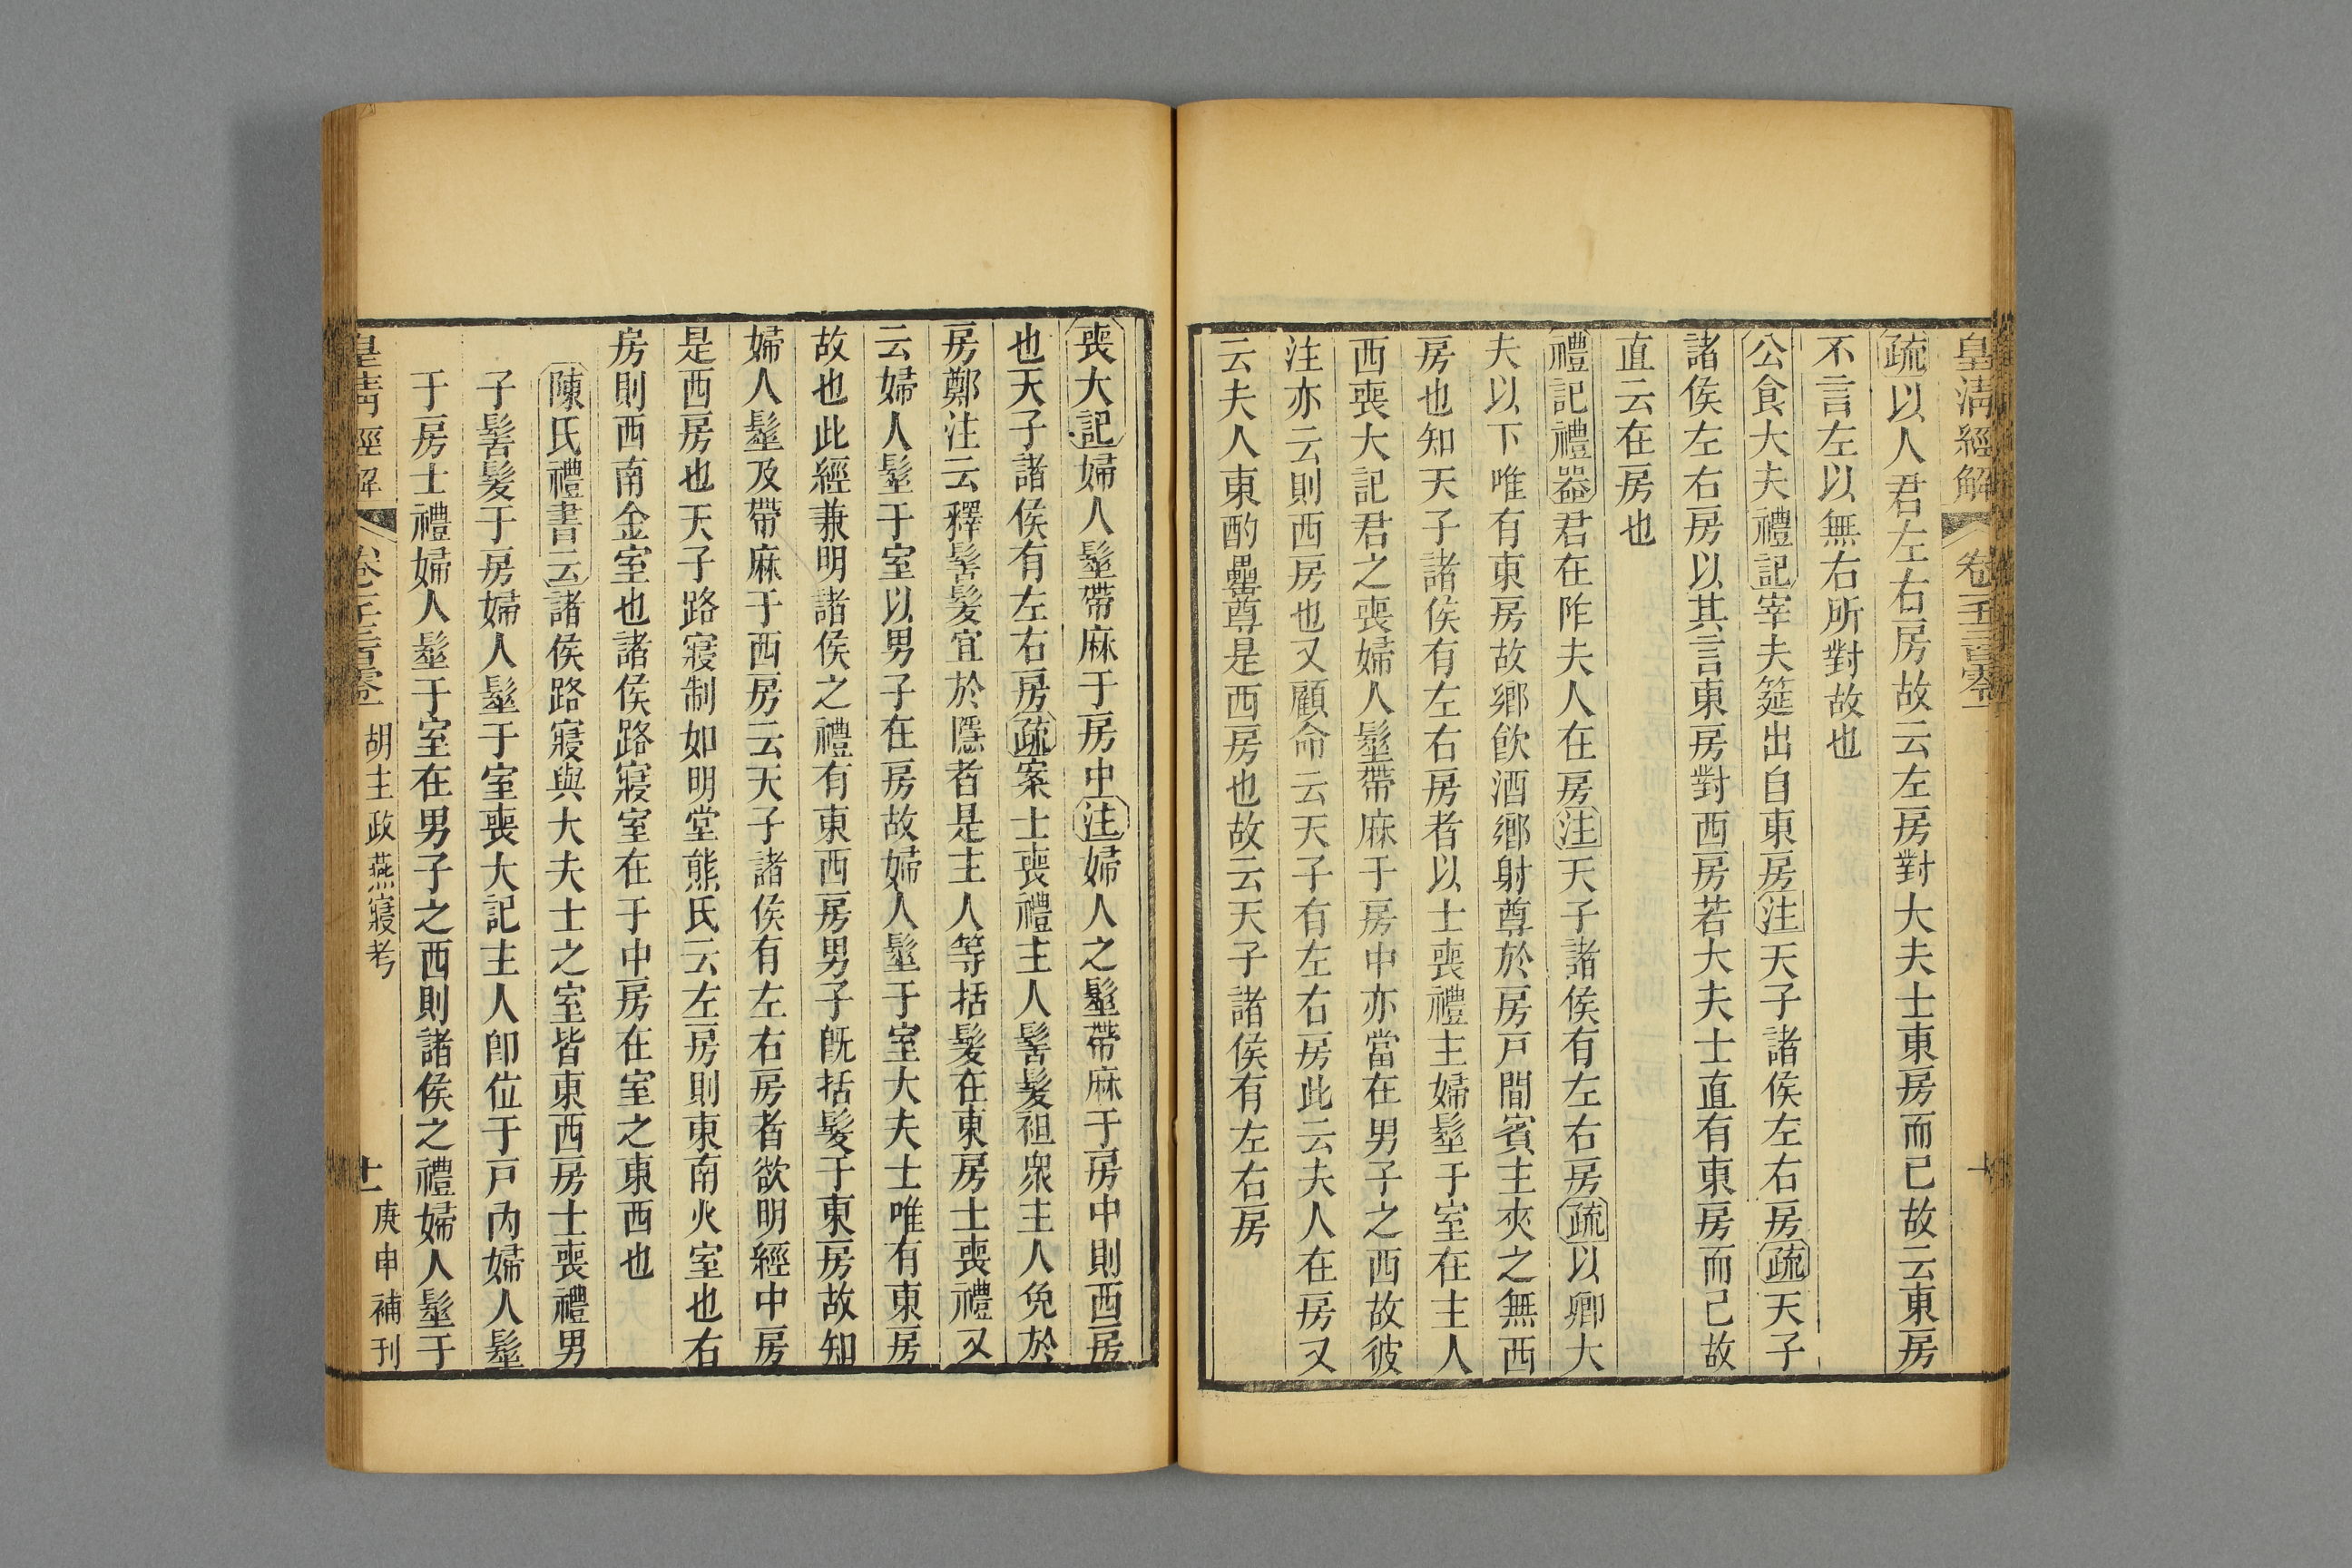 皇清經解 卷一千三百零一 十
疏以人君左右房故云左房對大夫士東房而已故云東房
不言左以無右所對故也
公食大夫禮記宰夫筵出自東房注天子諸侯左右房疏天子
諸侯左右房以其言東房對西房若大夫士直有東房而已故
直云在房也
禮記禮器君在阼夫人在房注天子諸侯有左右房疏以卿大
夫以下唯有東房故鄉飲酒鄉射尊於房戸間賓主夾之無西
房也知天子諸侯有左右房者以士喪禮主婦髽于室在主人
西喪大記君之喪婦人髽帶麻于房中亦當在男子之西故彼
注亦云則西房也又顧命云天子有左右房此云夫人在房又
云夫人東酌罍尊是西房也故云天子諸侯有左右房
喪大記婦人髽帶麻于房中注婦人之髽帶麻于房中則西房
也天子諸侯有左右房疏案士喪禮主人髻髮袒眾主人免於
房鄭注云釋髻髮宜於隱者是主人等括髮在東房士喪禮又
云婦人髽于室以男子在房故婦人髽于室大夫士唯有東房
故也此經兼明諸侯之禮有東西房男子既括髮于東房故知
婦人髽及帶麻于西房云天子諸侯有左右房者欲明經中房
是西房也天子路寢制如明堂熊氏云左房則東南火室也右
房則西南金室也諸侯路寢室在于中房在室之東西也
陳氏禮書云諸侯路寢與大夫士之室皆東西房士喪禮男
子髻髮于房婦人髽于室喪大記主人即位于戸内婦人髽
于房士禮婦人髽于室在男子之西則諸侯之禮婦人髽于
皇清經解 卷一千三百零一 胡主政燕寢考 十一 庚申補刊